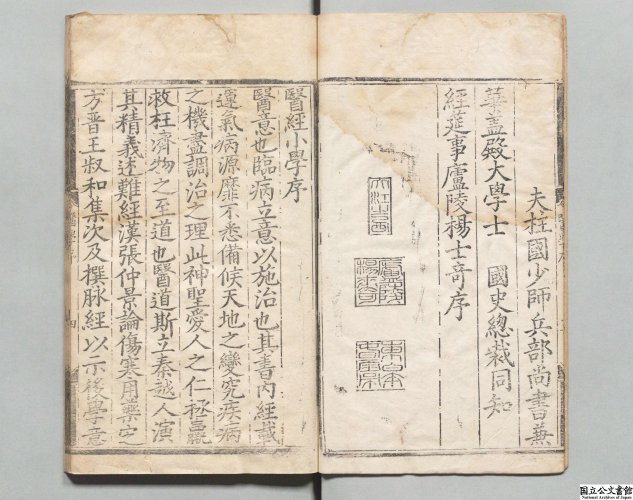 夫柱國少師兵部尚書兼
華蓋殿大學士　國史總裁同知
經筵事廬陵楊士奇序
廬陵
楊士奇
醫經小學序
醫意也臨病立意以施治也其書内經載
運氣病源靡不悉備候天地之變究疾病
之機盡調治之理此神聖愛人之仁極
救枉濟物之至道也醫道斯立秦越人演
其精義述難經漢張仲景論傷寒用藥定
方晋王叔和集次及撰脉經以示後學意
國立公文書館
National Archives of Japan